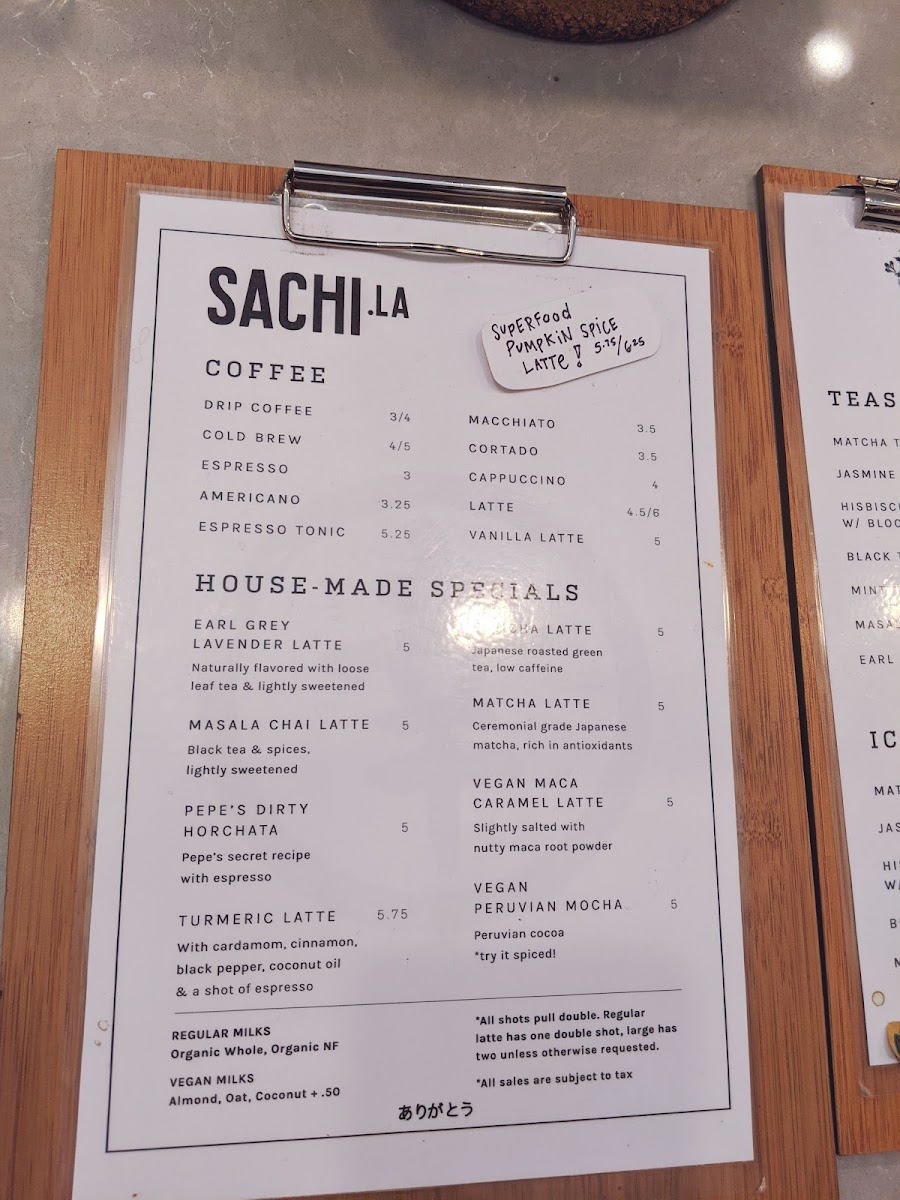 SACHI.LA
SUPERFOOD
PUMPKIN SPICE
LATTE! 5.75/6.25
COFFEE
DRIP COFFEE 3/4
COLD BREW 4/5
ESPRESSO 3
AMERICANO 3.25
ESPRESSO TONIC 5.25
MACCHIATO 3.5
CORTADO 3.5
CAPPUCCINO 4
LATTE 4.5/6
VANILLA LATTE 5
HOUSE-MADE SPECIALS
EARL GREY
LAVENDER LATTE 5
Naturally flavored with loose
leaf tea & lightly sweetened
MASALA CHAI LATTE 5
Black tea & spices,
lightly sweetened
PEPE'S DIRTY
HORCHATA 5
Pepe's secret recipe
with espresso
TURMERIC LATTE 5.75
With cardamom, cinnamon,
black pepper, coconut oil
& a shot of espresso
LATTE 5
Japanese roasted green
tea, low caffeine
MATCHA LATTE 5
Ceremonial grade Japanese
matcha, rich in antioxidants
VEGAN MACA
CARAMEL LATTE 5
Slightly salted with
nutty maca root powder
VEGAN
PERUVIAN MOCHA 5
Peruvian cocoa
*try it spiced!
REGULAR MILKS
Organic Whole, Organic NF
VEGAN MILKS
Almond, Oat, Coconut + .50
*All shots pull double. Regular
latte has one double shot, large has
two unless otherwise requested.
*All sales are subject to tax
ありがとう
TEAS
MATCHA
JASMINE
W/
BLACK
MINT
EARL